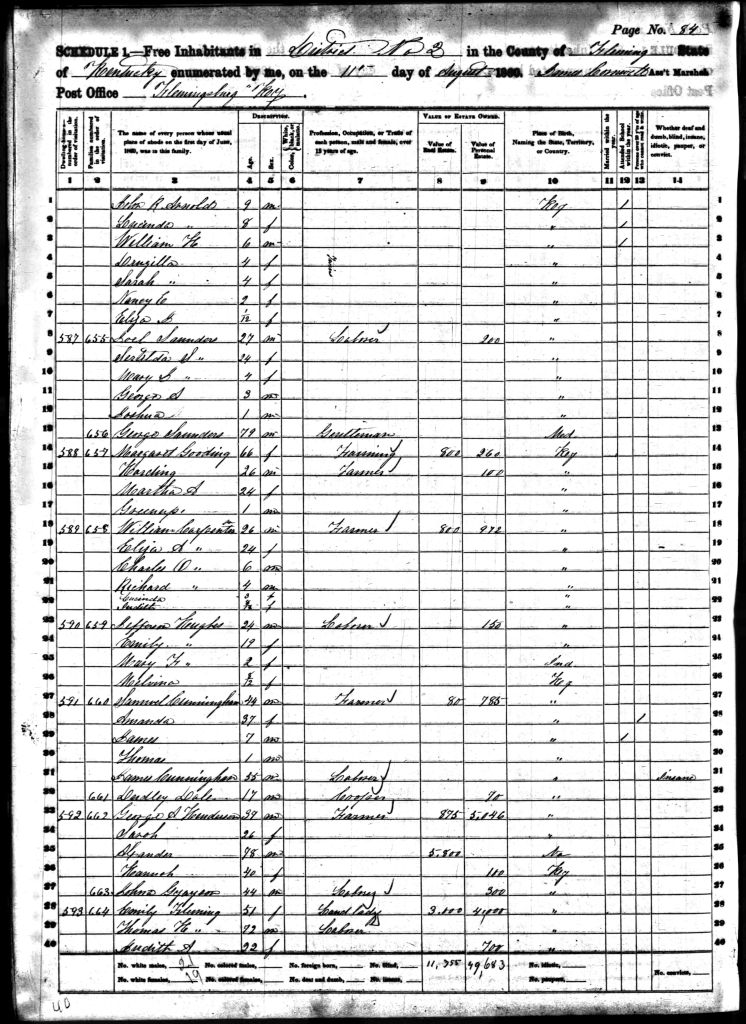 Page No. 84
SCHEDULE 1.—Free Inhabitants in District No 2 in the County of Fleming State
of Kentucky enumerated by me, on the 11th day of August 1860. Ass't Marshal
Post Office Flemingsburg Key
Dwelling-houses— numbered in the order of visitation.
Families numbered in the order of visitation.
The name of every person whose usual place of abode on the first day of June, 1860, was in this family.
DESCRIPTION.
Age.
Sex.
Color, White, black, or mulatto.
Profession, Occupation, or Trade of each person, male and female, over 15 years of age.
VALUE OF ESTATE OWNED.
Value of Real Estate.
Value of Personal Estate.
Place of Birth, Naming the State, Territory, or Country.
Married within the year.
Attended School within the year.
Persons over 20 y'rs of age who cannot read & write.
Whether deaf and dumb, blind, insane, idiotic, pauper, or convict.
1 2 3 4 5 6 7 8 9 10 11 12 13 14
1 R Arnold 9 m Key / 1
2 Lucinda " 8 f " / 2
3 William H 6 m " / 3
4 Druzilla 4 f " 4
5 Sarah " 4 f " 5
6 Nancy C 2 f " 6
7 Eliza 1/12 f " 7
8 587 655 Joel Saunders 27 m Laborer 200 " 8
9 24 f " 9
10 Mary " 4 f " 10
11 George S 3 m " 11
12 Joshua 1 m " 12
13 656 George Saunders 79 m Gentleman Md 13
14 588 657 Margaret Gooding 66 f Farming 800 260 Key 14
15 Harding 26 m Farmer 100 " 15
16 Martha A 24 f " 16
17 Greenup 1 m " 17
18 589 658 William Carpenter 26 m Farmer 800 972 " 18
19 Eliza A " 24 f " 19
20 Charles O " 6 m " 20
21 Richard " 4 m " 21
22 Lucinda 3 f "
Judith f " 22
23 590 659 Jefferson Hughes 24 m Laborer 150 " 23
24 Emily " 19 f " 24
25 Mary F " 2 f Ind 25
26 Melvina f Ky 26
27 591 660 Samuel Cunningham 44 m Farmer 80 785 " 27
28 Amanda 37 f " / 28
29 James 7 m " / 29
30 Thomas 1 m " 30
31 James Cunningham 55 m Laborer " Insane 31
32 661 Dudley Dale 17 m Cooper 70 " 32
33 592 662 George S Henderson 39 m Farmer 875 5,046 " 33
34 Sarah 26 f " 34
35 78 m 5,800 Va 35
36 Hannah 40 f 100 Ky 36
37 663 John Grayson 44 m Laborer 300 " 37
38 593 664 Emily Fleming 51 f Land Lady 3,000 4,000 " 38
39 Thomas H " 22 m Laborer " 39
40 Judith A 22 f 700 " 40
No. white males, 21 No. colored males, No. foreign born, No. blind, 11,355 49,683 No. idiotic,
No. white females, 19 No. colored females, No. deaf and dumb, No. insane, No. paupers, No. convicts,
40